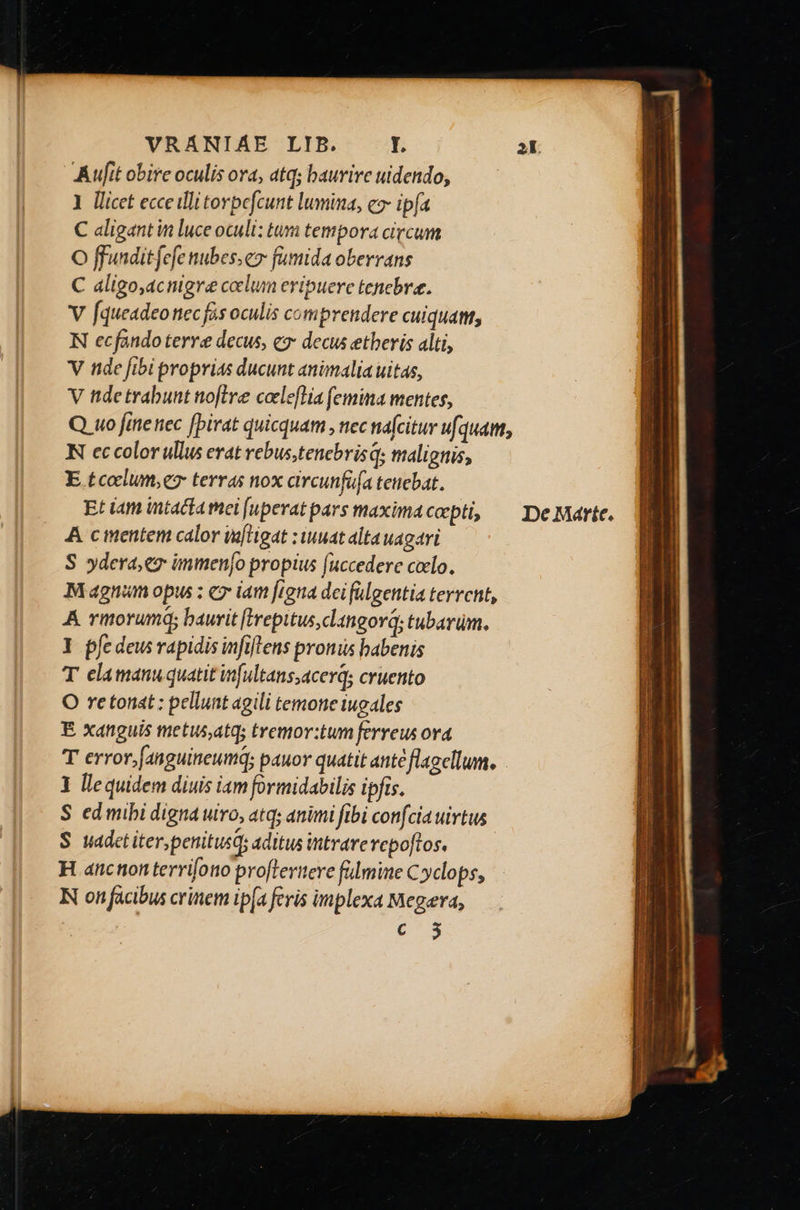 VRANIAE LIB. I. 21
Auſit obire oculis ora, atq; haurire uidendo,
I llicet ecce illi torpeſcunt lumina, & ipſa
C aligant in luce oculi: tum tempora circum
O ffundit ſeſe nubes, & fumida oberrans
C aligo, ac nigræ cœlum eripuere tenebræ.
V ſqueadeo nec fas oculis comprendere cuiquam,
N ec fando terræ decus, & decus ætheris alti,
V nde ſibi proprias ducunt animalia uitas,
V nde trahunt noſtræ cœleſtia ſemina mentes,
Q uo ſine nec ſpirat quicquam, nec naſcitur uſquam,
N ec color ullus erat rebus, tenebrisq; malignis,
E t cœlum, & terras nox circunfuſa tenebat.
Et iam intacta mei ſuperat pars maxima cœpti, De Marte.
A c mentem calor inſtigat: iuuat alta uagari
S ydera, & immenſo propius ſuccedere cœlo.
M agnum opus: & iam ſigna dei fulgentia terrent,
A rmorumq; haurit ſtrepitus, clangorq; tubarum.
I pſe deus rapidis inſiſtens pronus habenis
T ela manu quatit inſultans, acerq; cruento
O re tonat: pellunt agili temone iugales
E xanguis metus, atq; tremor: tum ferreus ora
T error, ſanguineumq; pauor quatit antè flagellum.
I lle quidem diuis iam formidabilis ipſis.
S ed mihi digna uiro, atq; animi ſibi conſcia uirtus
S uadet iter, penitusq; aditus intrare repoſtos.
H anc non terriſono proſternere fulmine Cyclops,
N on facibus crinem ipſa feris implexa Megæra,
C 3